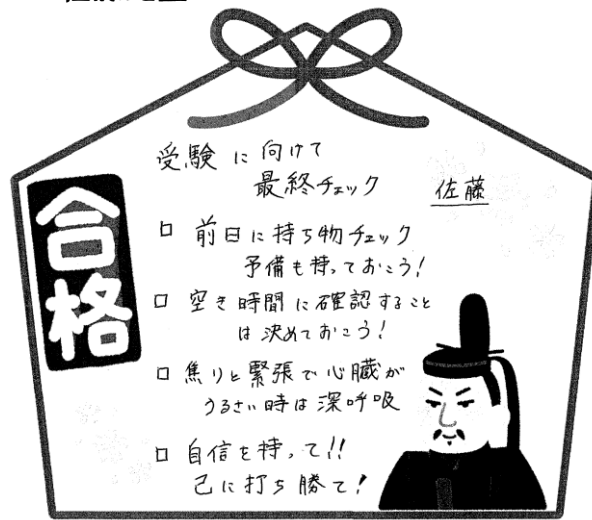 受験に向けて
最終チェック
佐藤
合格
□ 前日に持ち物チェック
予備も持っておこう!
□ 空き時間に確認すること
は決めておこう!
□ 焦りと緊張で心臓が
うるさい時は深呼吸
□ 自信を持って!!
己に打ち勝て!